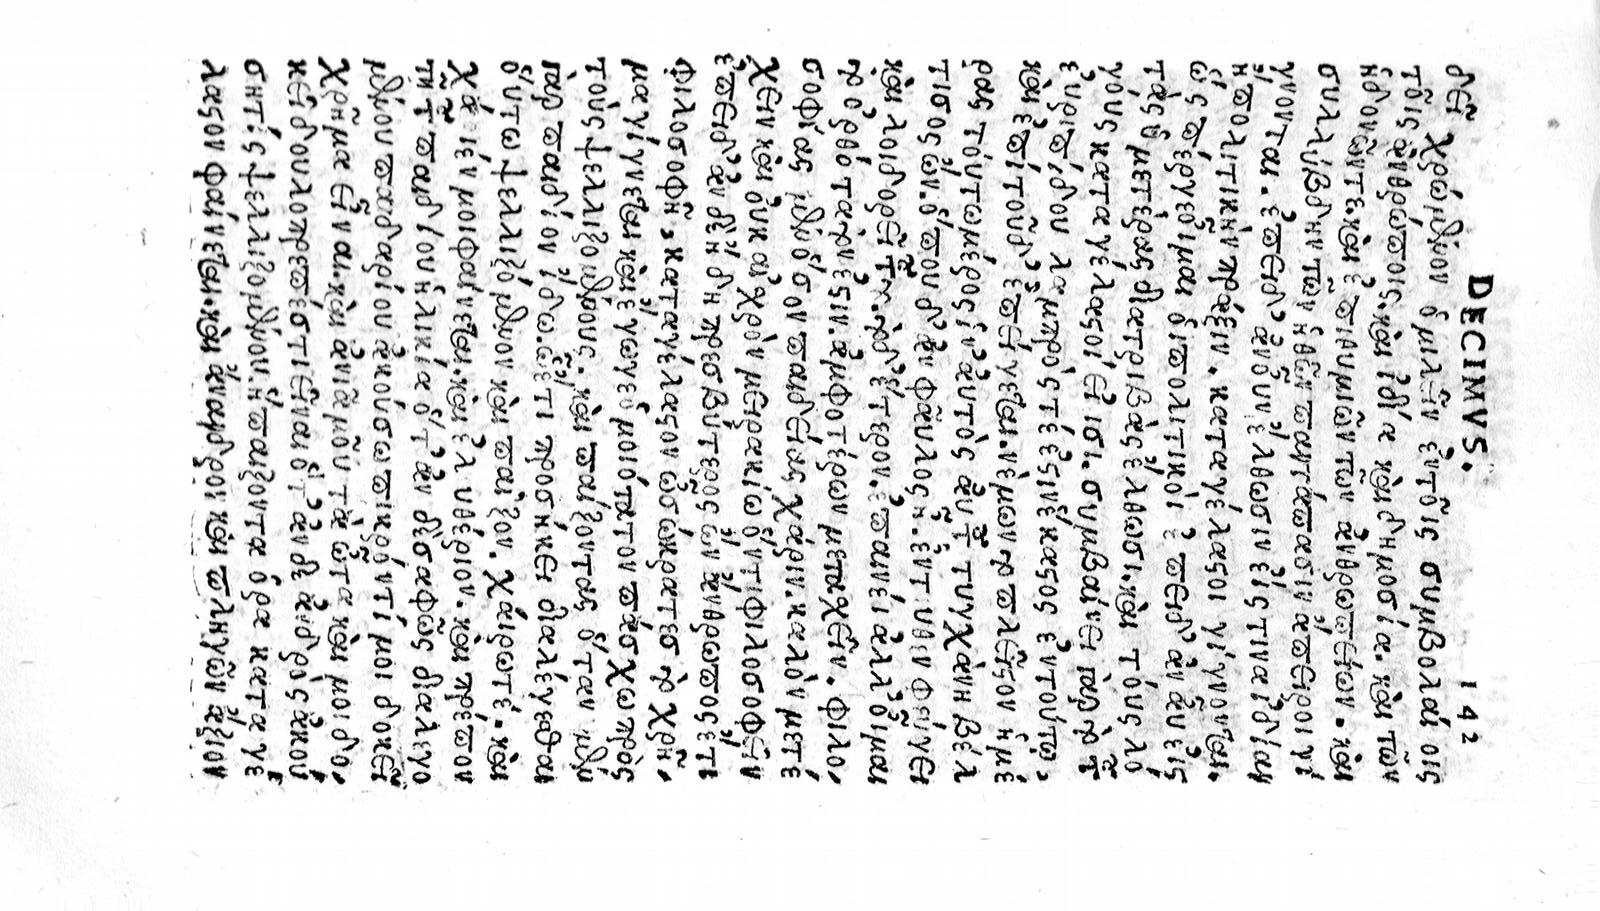 DECIMVS. 142
δεῖ χρώμενον ὁμιλεῖν ἐν τοῖς συμβολαίοις
τοῖς ἀνθρώποις. καὶ ἰδία καὶ δημοσία. καὶ τῶν
ἡδονῶν τε. καὶ ἐπιθυμιῶν τῶν ἀνθρωπείων. καὶ
συλλήβδην τῶν ἠθῶν παντάπασιν ἄπειροι γί
γνονται. ἐπειδ' ἂν οὖν ἔλθωσιν εἴς τινα ἰδίαν
ἢ πολιτικὴν πράξιν. καταγέλαστοι γίγνονται.
ὥς περ γε οἶμαι ὁι πολιτικόι ἐπειδ' ἂν αὖ εἰς
τὰς ὑμετέρας διατριβὰς ἔλθωσι. καὶ τοὺς λό
γους καταγέλαστοι εἰσι. συμβαίνει γὰρ τὸ τοῦ
ἐυριπίδου λαμπρός τέ ἐστιν ἕκαστος ἐν τούτῳ.
καὶ ἐπὶ τοῦδ' ἐπείγεται. νέμων τὸ πλεῖστον ἡμέ
ρας τούτω μέρος ἵν' ἀυτὸς ἁυτοῦ τυγχάνη βέλ
τιστος ὤν. ὅπου δ' ἂν φαῦλος ἦ. ἐντευθεν φεύγει
καὶ λοιδορεῖ τοῦτο. τὸ δ' ἕτερον. ἐπαινεῖ ἀλλ' οἶμαι
τὸ ὀρθότατόν ἐστιν. ἀμφοτέρων μετασχεῖν. φιλο
σοφίας μὲν ὅσον παιδείας χάριν. καλὸν μετέ
χειν καὶ ὀυκ ἀισχρὸν μειρακίω ὄντι φιλοσοφεῖν
ἐπειδ' ἂν δὲ ἤδη πρεσβύτερος ὢν ἄνθρωπος ἔτι
φιλοσοφῆ. καταγέλαστον ὦ σώκρατες τὸ χρῆ
μα γίγνεται καὶ ἔγωγε ὁμοιότατον πάσχω πρὸς
τοὺς ψελλιζομένους. καὶ παίζοντας ὅταν μὲν
γὰρ παιδίον ἴδω. ὧ ἔτι προσήκει διαλέγεσθαι
ὅυτω ψελλιζόμενον καὶ παῖζον. χάιρω τέ. καὶ
χάριέν μοι φαίνεται. καὶ ἐλευθέριον. καὶ πρέπον
τῆ τοῦ παιδίου ἡλικία ὅτ' ἂν δὲ σαφῶς διαλεγο
μένου παιδαρίου ἀκούσω πικρόν τί μοι δοκεῖ
χρῆμα εἶναι. καὶ ἀνιᾶ μοῦ τὰ ὦτα καὶ μοι δο
κεῖ δουλοπρεπέστι εἶναι ὅτ' ἂν δὲ ἀνδρὸς ἀκού
ση τίς ψελλιζομένου. ἢ παιζοντα ὁρα καταγέ
λαστον φαίνεται. καὶ ἄνανδρον καὶ πληγῶν ἄξιον